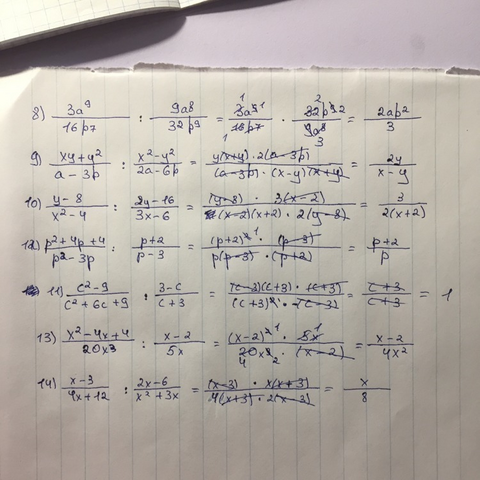 8) 3a⁹/16p7 : 9a8/32p9 = 3a91/16p7 · 32p92/9a8 = 2ap²/3
9) xy+y²/a-3p : x²-y²/2a-6p = y(x+y)·2(a-3p)/(a-3p)·(x-y)(x+y) = 2y/x-y
10) y-8/x²-4 : 2y-16/3x-6 = (y-8)·3(x-2)/(x-2)(x+2)·2(y-8) = 3/2(x+2)
12) p²+4p+4/p²-3p : p+2/p-3 = (p+2)²1·(p-3)/p(p-3)·(p+2) = p+2/p
11) c²-9/c²+6c+9 : 3-c/c+3 = (c-3)(c+3)·(c+3)/(c+3)²·(c-3) = c+3/c+3 = 1
13) x²-4x+4/20x3 : x-2/5x = (x-2)²1·5x1/20x32·(x-2) 4 = x-2/4x²
14) x-3/4x+12 : 2x-6/x²+3x = (x-3)·x(x+3)/4(x+3)·2(x-3) = x/8